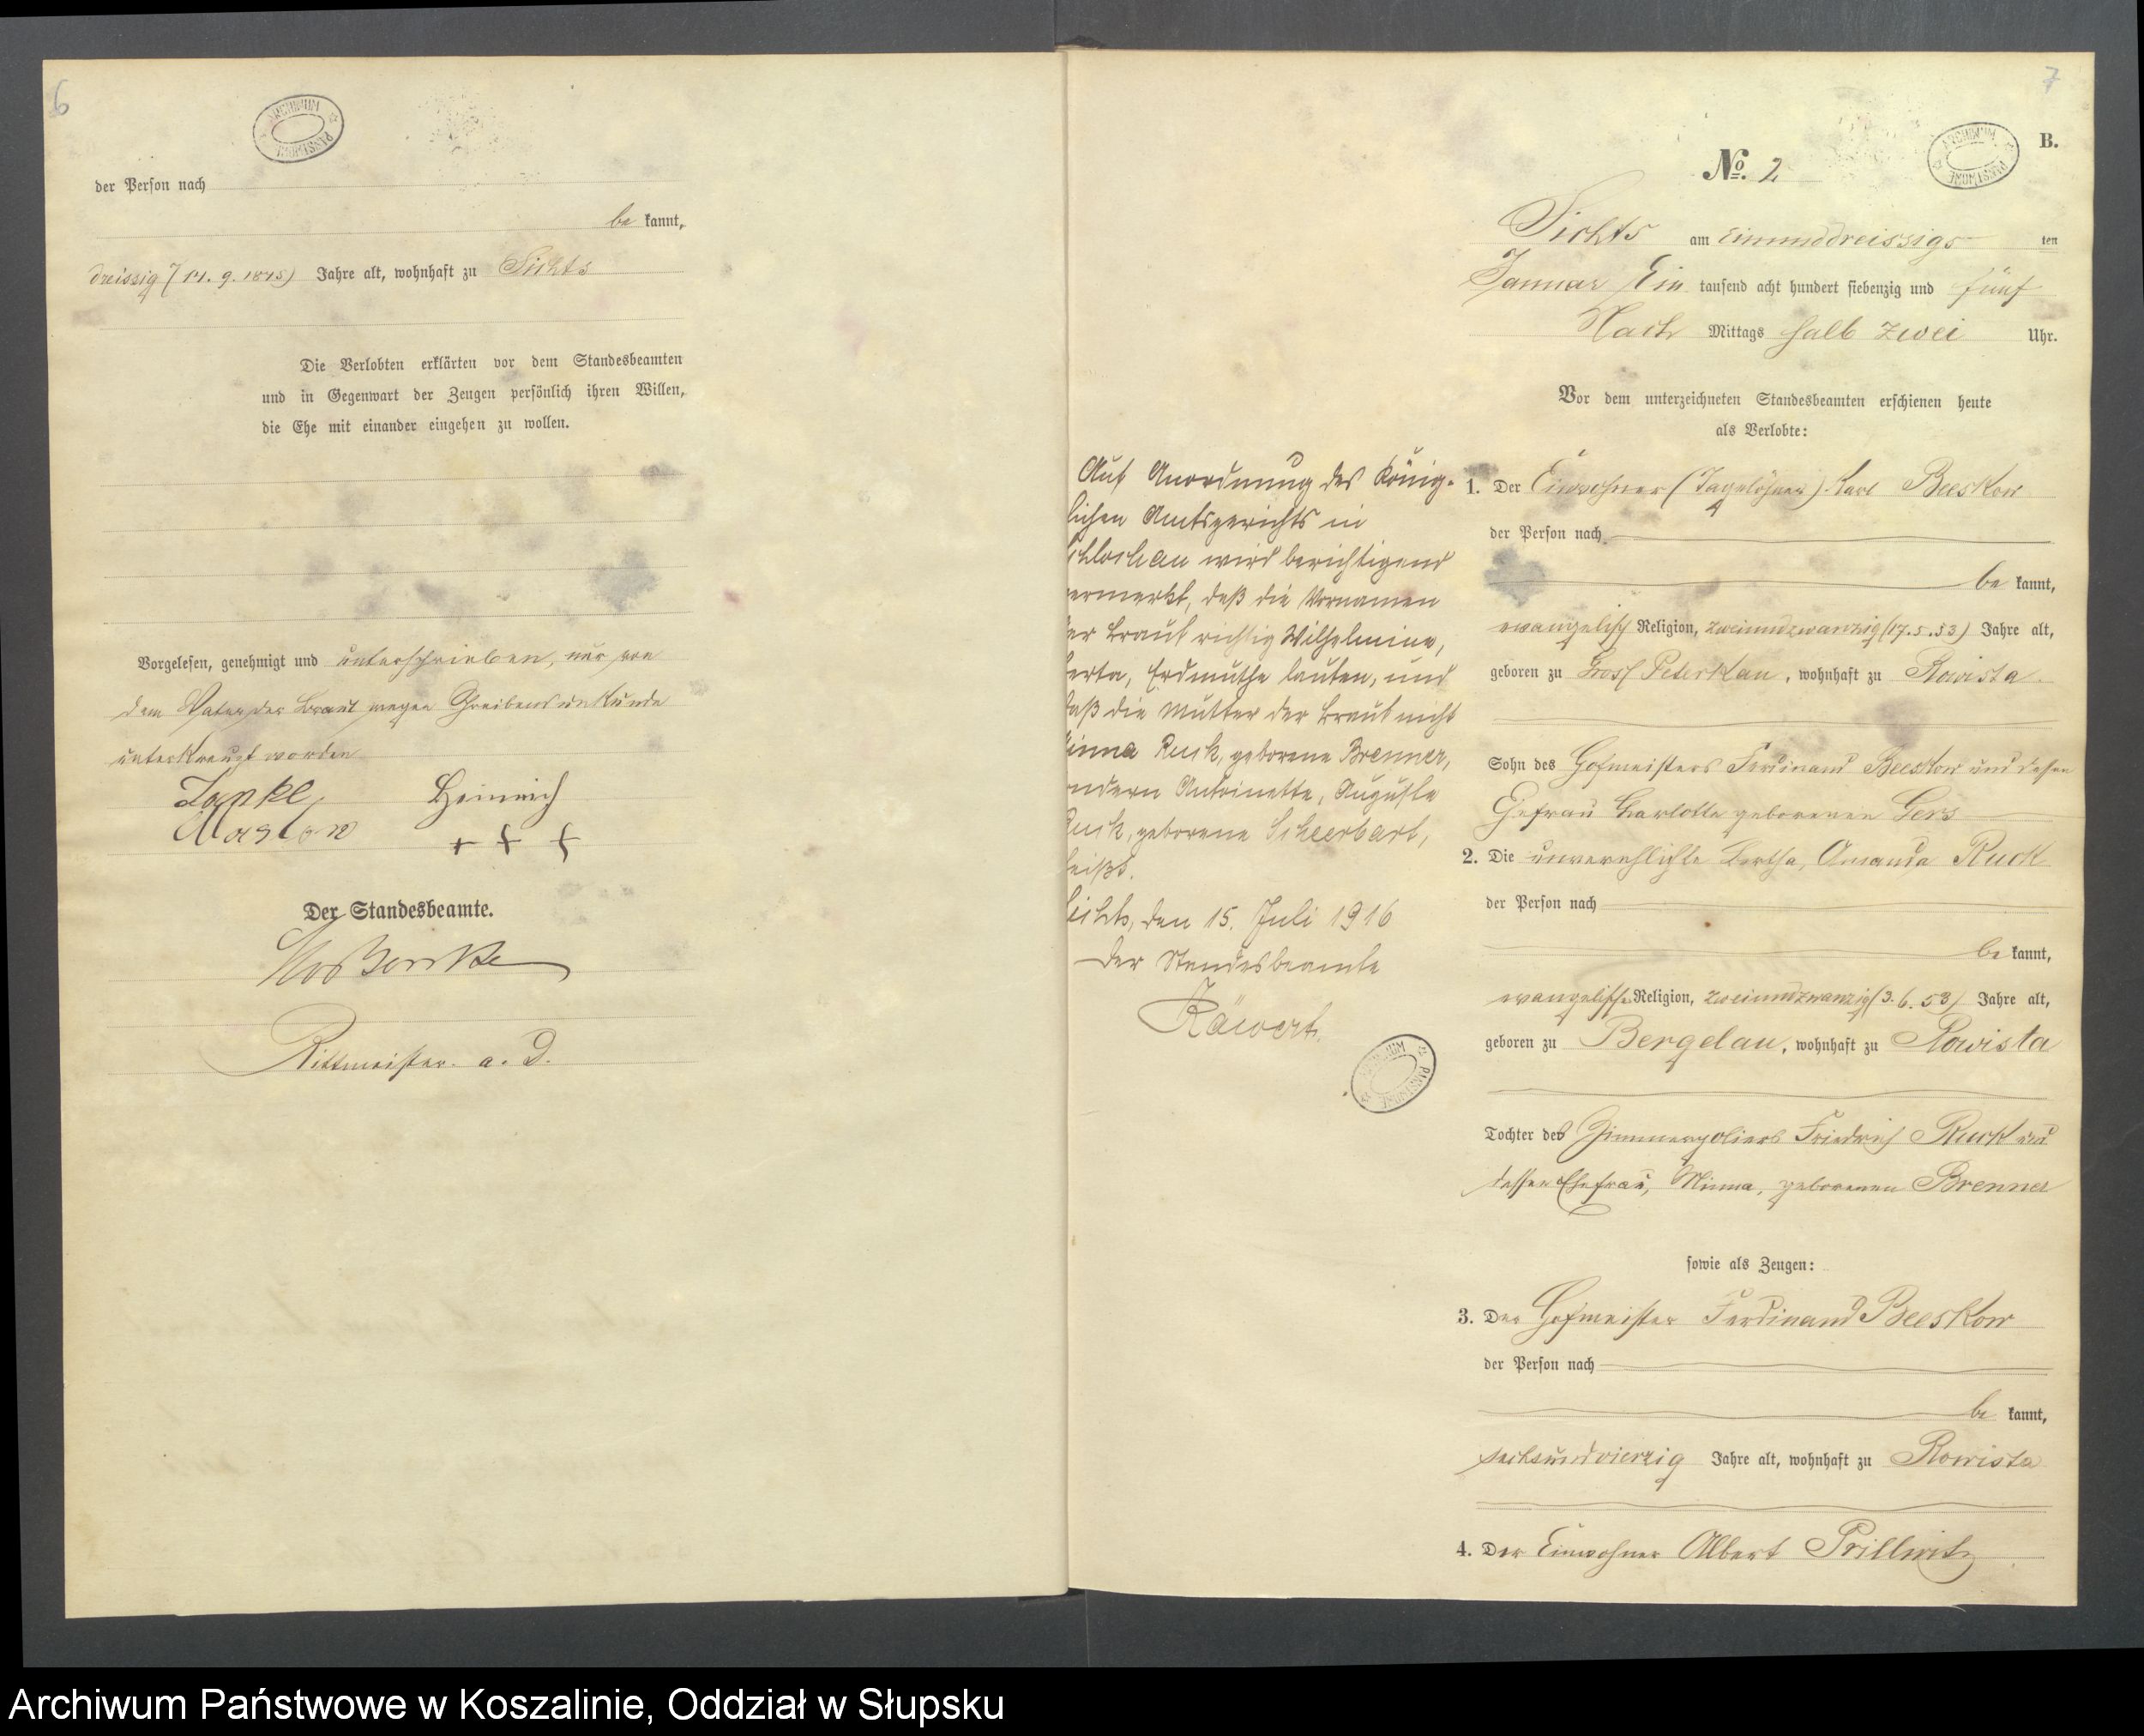 6
ARCHIWUM PAŃSTWOWE
der Person nach
be kannt,
dreissig Jahre alt, wohnhaft zu Sichts
Die Verlobten erklärten vor dem Standesbeamten
und in Gegenwart der Zeugen persönlich ihren Willen,
die Ehe mit einander eingehen zu wollen.
Vorgelesen, genehmigt und unterschrieben, nur von
dem Vater der Braut wegen Schreibensunkunde
unterkreuzt worden
Heinrich
+ + +
Der Standesbeamte.
Rittmeister a. D.
7
ARCHIWUM PAŃSTWOWE
B.
No. 2
Sichts am einunddreissigs ten
Januar Ein tausend acht hundert siebenzig und fünf
Nach Mittags halb zwei Uhr.
Vor dem unterzeichneten Standesbeamten erschienen heute
als Verlobte:
1. Der Einwohner (Tagelöhner) Karl Beeskow
der Person nach
be kannt,
evangelisch Religion, zweiundzwanzig (17.5.53) Jahre alt,
geboren zu Gross Peterkau, wohnhaft zu Rowista
Sohn des Hofmeisters Ferdinand Beeskow und dessen
Ehefrau Charlotte geborenen Gers
2. Die unverehlichte Bertha, Amanda Ruck
der Person nach
be kannt,
evangelische Religion, zweiundzwanzig (3.6.53) Jahre alt,
geboren zu Bergelau, wohnhaft zu Rowista
Tochter des Zimmerpoliers Friedrich Ruck und
dessen Ehefrau, Minna, geborenen Brenner
sowie als Zeugen:
3. Der Hofmeister Ferdinand Beeskow
der Person nach
be kannt,
sechsundvierzig Jahre alt, wohnhaft zu Rowista
4. Der Einwohner Albert Prillwitz
Auf Anordnung des König-
lichen Amtsgerichts in
chlochau wird berichtigend
ermerkt, daß die Vornamen
er Braut richtig Wilhelmine,
erta, Erdmuthe lauten, und
aß die Mutter der Braut nicht
inna Ruck, geborene Brenner,
ndern Antoinette, Auguste
uck, geborene Scheerbart,
eißt.
ichts, den 15. Juli 1916
Der Standesbeamte
Räwert.
ARCHIWUM PAŃSTWOWE
Archiwum Państwowe w Koszalinie, Oddział w Słupsku